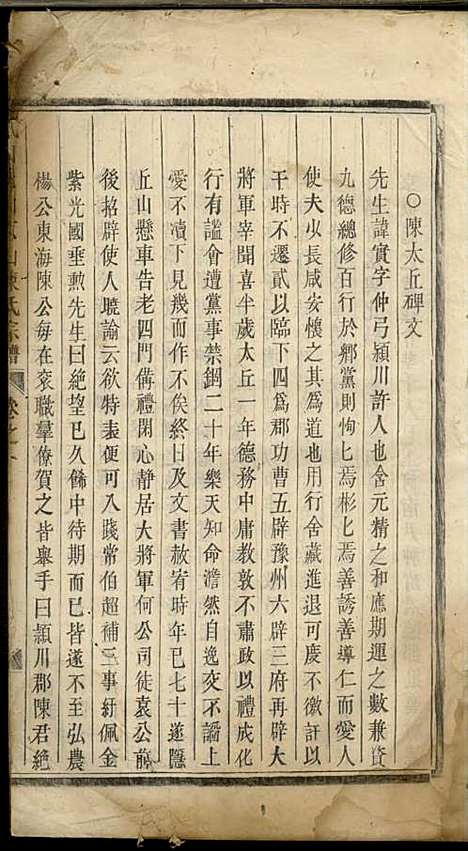 ○陳太丘碑文
先生諱實字仲弓潁川許人也舍元精之和應期運之數兼資
九德總修百行於鄉黨則恂匕焉彬匕焉善誘善導仁而愛人
使夫少長咸安懷之其爲道也用行舍藏進退可慶不徼訐以
干時不遷貳以臨下四爲郡功曹五辟豫州六辟三府再辟大
將軍宰聞喜半歲太丘一年德務中庸教敦不肅政以禮成化
行有謐會遭黨事禁錮二十年樂天知命澹然自逸交不謟上
愛不瀆下見幾而作不俟終日及文書赦宥時年已七十遂隱
丘山懸車告老四門備禮閑心靜居大將軍何公司徒袁公前
後招辟使人曉諭云欲特表便可入踐常伯超補三事紆佩金
紫光國垂勲先生曰絕望已久餙巾待期而已皆遂不至弘農
楊公東海陳公每在衮職羣僚賀之皆舉手曰潁川郡陳君絕
陳氏宗譜